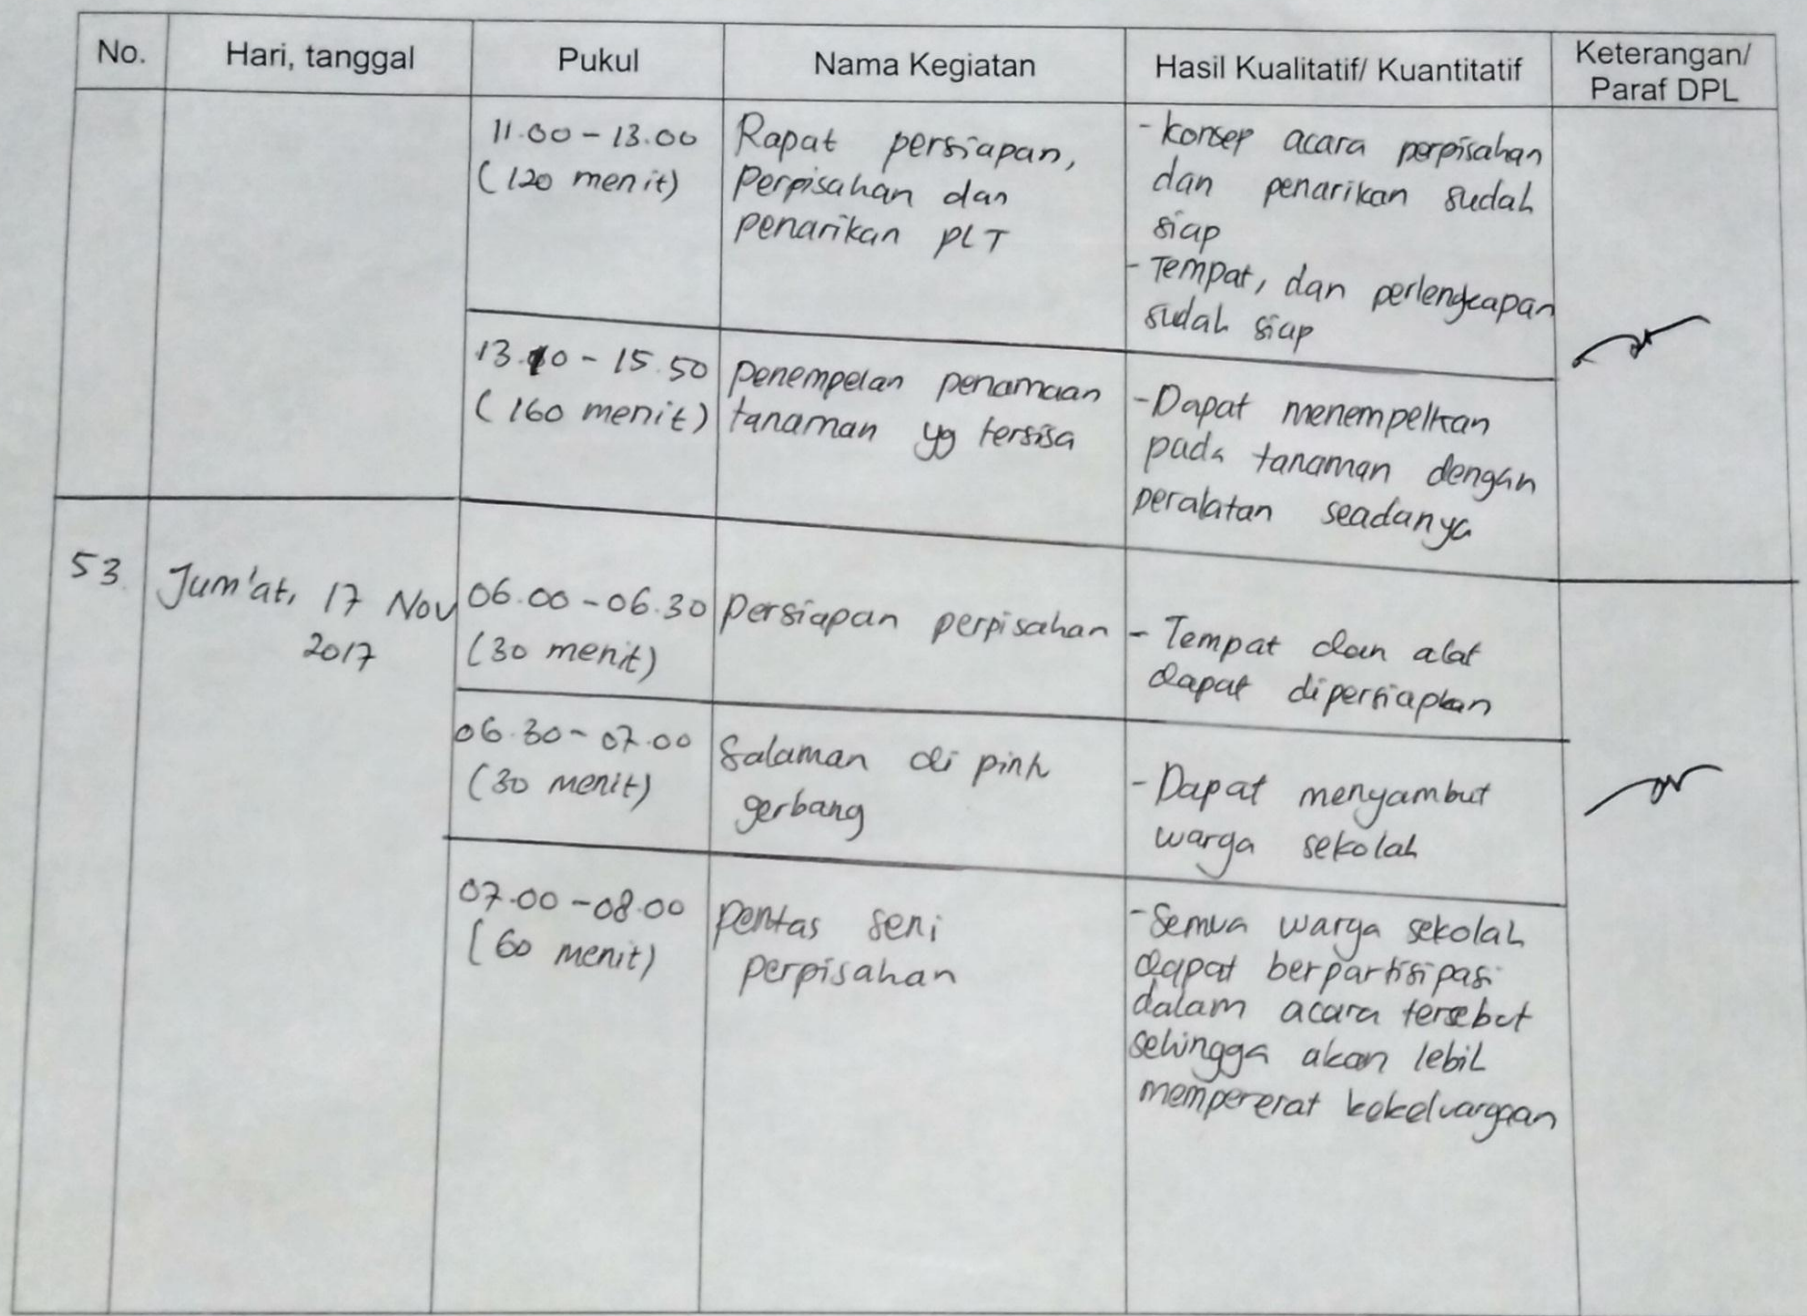 No. Hari, tanggal Pukul Nama Kegiatan Hasil Kualitatif/ Kuantitatif Keterangan/
Paraf DPL
11.00 - 13.00
(120 menit)
Rapat persiapan,
Perpisahan dan
penarikan PLT
- Konsep acara perpisahan
dan penarikan sudah
siap
- Tempat, dan perlengkapan
sudah siap
13.10 - 15.50
(160 menit)
penempelan penamaan
tanaman yg tersisa
- Dapat menempelkan
pada tanaman dengan
peralatan seadanya
53.
Jum'at, 17 Nov
2017
06.00 - 06.30
(30 menit)
Persiapan perpisahan
- Tempat dan alat
dapat dipersiapkan
06.30 - 07.00
(30 menit)
Salaman di pintu
gerbang
- Dapat menyambut
warga sekolah
07.00 - 08.00
(60 menit)
pentas seni
perpisahan
- Semua warga sekolah
dapat berpartisipasi
dalam acara tersebut
sehingga akan lebih
mempererat kekeluargaan